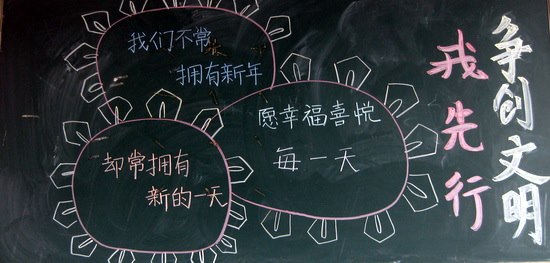 争创文明
我先行
我们不常
拥有新年
却常拥有
新的一天
愿幸福喜悦
每一天